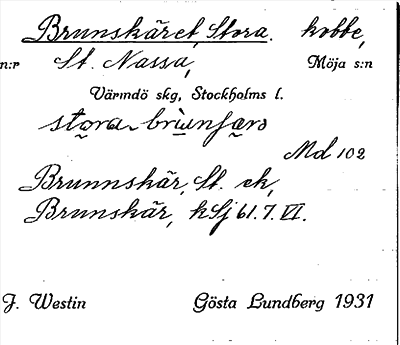 Brunskäret, Stora. kobbe,
n:r St. Nassa, Möja s:n
Värmdö skg, Stockholms l.
Md 102
Brunnskär, St. ek,
Brunskär, kSj 61.7.VI.
J. Westin Gösta Lundberg 1931